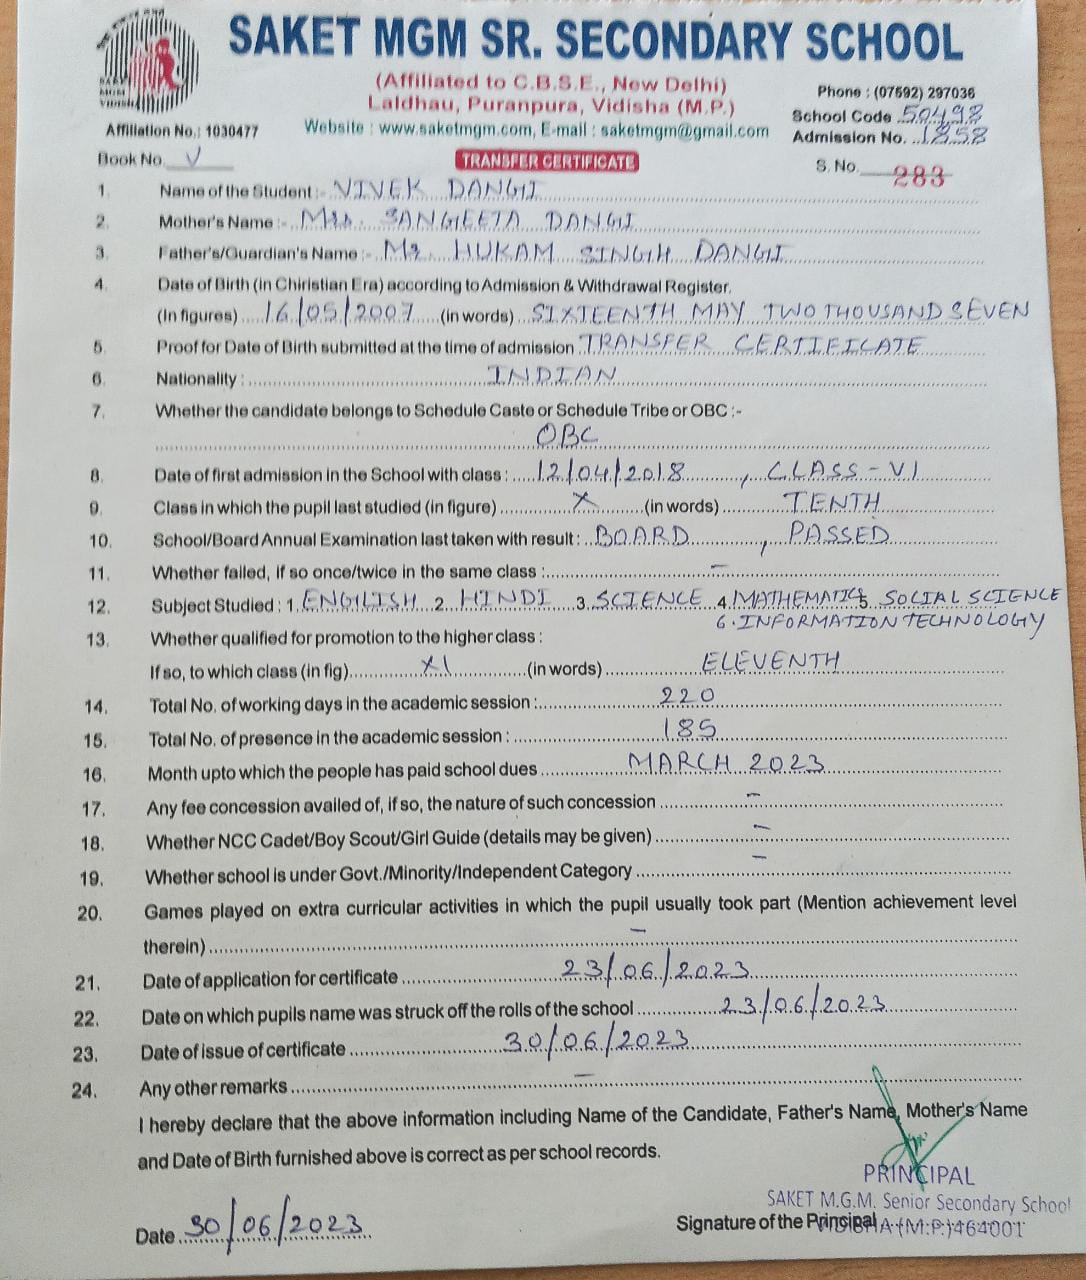 SAKET MGM SR. SECONDARY SCHOOL
(Affiliated to C.B.S.E., New Delhi)
Laldhau, Puranpura, Vidisha (M.P.)
Phone : (07592) 297036
School Code 50498
Affiliation No.: 1030477 Website : www.saketmgm.com, E-mail : saketmgm@gmail.com Admission No. 1858
Book No. V TRANSFER CERTIFICATE S. No. 283
1. Name of the Student :- VIVEK DANGI
2. Mother's Name :- Mrs. SANGEETA DANGI
3. Father's/Guardian's Name :- Mr. HUKAM SINGH DANGI
4. Date of Birth (in Chiristian Era) according to Admission & Withdrawal Register.
(In figures) 16/05/2007 (in words) SIXTEENTH MAY TWO THOUSAND SEVEN
5. Proof for Date of Birth submitted at the time of admission TRANSFER CERTIFICATE
6. Nationality : INDIAN
7. Whether the candidate belongs to Schedule Caste or Schedule Tribe or OBC :-
OBC
8. Date of first admission in the School with class : 12/04/2018, CLASS - VI
9. Class in which the pupil last studied (in figure) X (in words) TENTH
10. School/Board Annual Examination last taken with result : BOARD, PASSED
11. Whether failed, if so once/twice in the same class : –
12. Subject Studied : 1. ENGLISH 2. HINDI 3. SCIENCE 4. MATHEMATICS 5. SOCIAL SCIENCE
6. INFORMATION TECHNOLOGY
13. Whether qualified for promotion to the higher class :
If so, to which class (in fig) XI (in words) ELEVENTH
14. Total No. of working days in the academic session : 220
15. Total No. of presence in the academic session : 185
16. Month upto which the people has paid school dues MARCH 2023
17. Any fee concession availed of, if so, the nature of such concession –
18. Whether NCC Cadet/Boy Scout/Girl Guide (details may be given) –
19. Whether school is under Govt./Minority/Independent Category –
20. Games played on extra curricular activities in which the pupil usually took part (Mention achievement level
therein) –
21. Date of application for certificate 23/06/2023
22. Date on which pupils name was struck off the rolls of the school 23/06/2023
23. Date of issue of certificate 30/06/2023
24. Any other remarks –
I hereby declare that the above information including Name of the Candidate, Father's Name, Mother's Name
and Date of Birth furnished above is correct as per school records.
PRINCIPAL
SAKET M.G.M. Senior Secondary School
VIDISHA (M.P.) 464001
Date 30/06/2023 Signature of the Principal